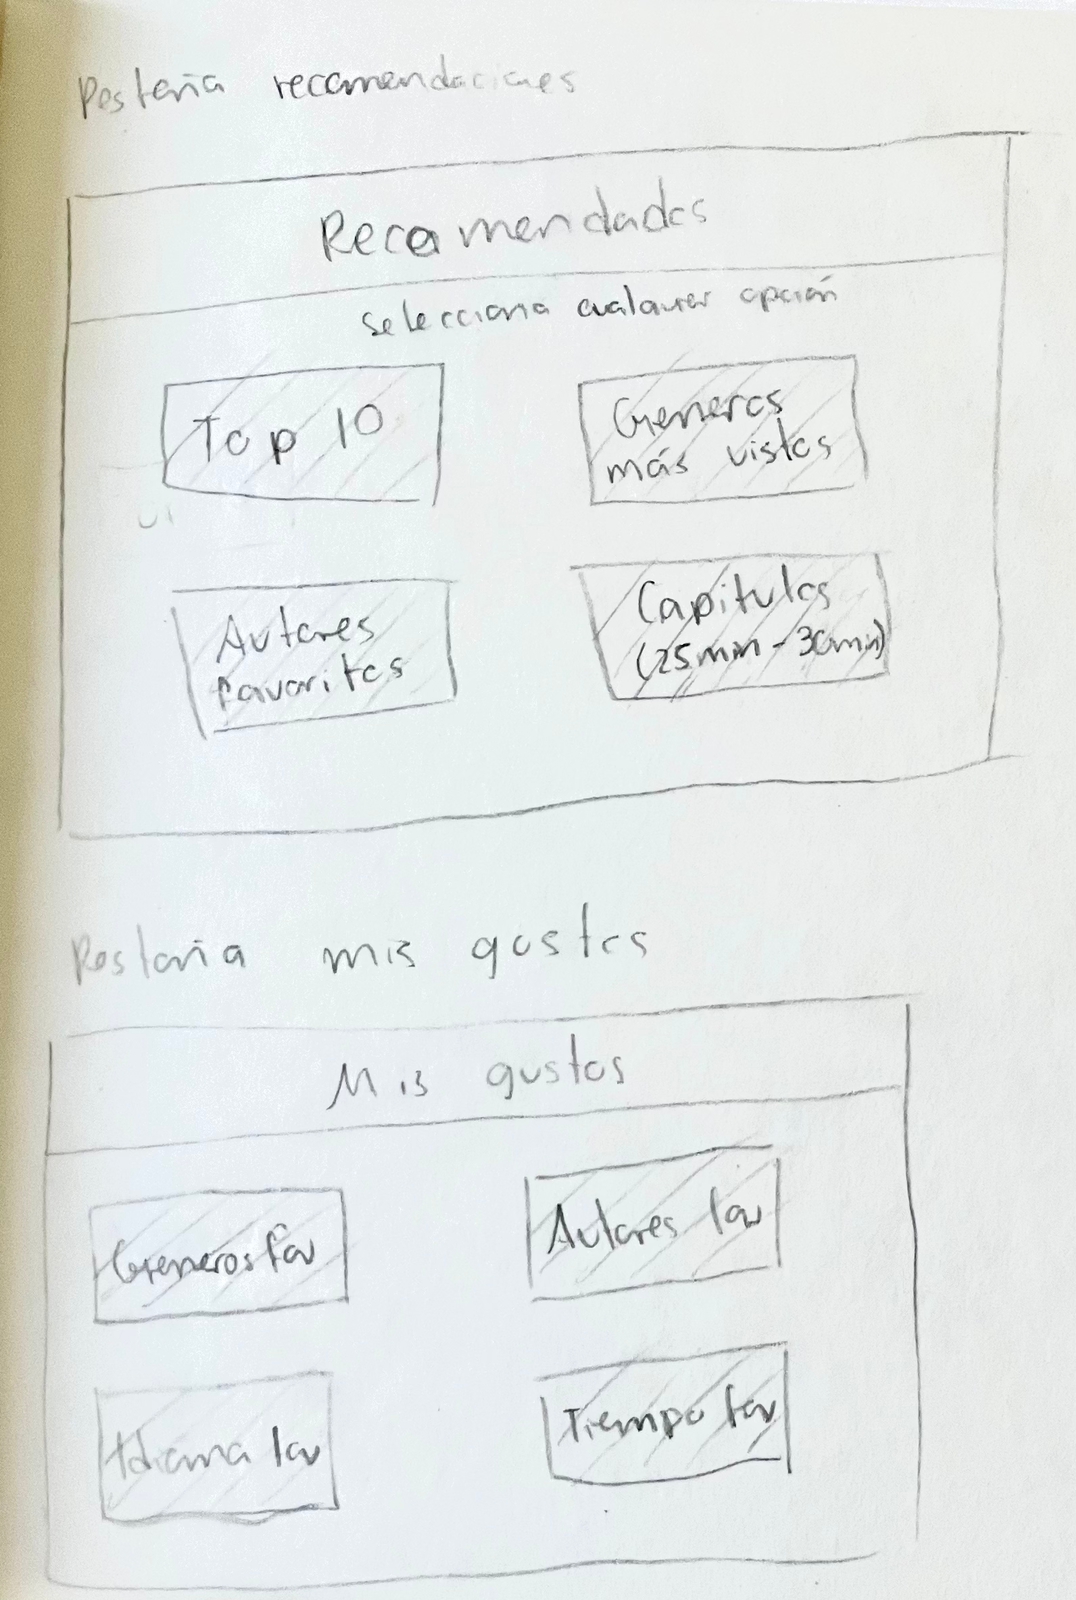 Pestaña recomendaciones
Recomendados
selecciona cualquier opción
Top 10
Generos
más vistos
Autores
favoritos
Capitulos
(25min - 30min)
Pestaña mis gustos
Mis gustos
Generos fav
Autores fav
Idioma fav
Tiempo fav